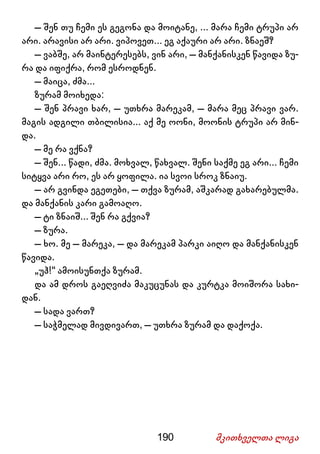 — შენ თუ ჩემი ეს გეგონა და მოიტანე, ... მარა ჩემი ტრუპი არ
არი. არავისი არ არი. ვიპოვეთ... ეგ აქაური არ არი. ზნაეშ?
— ვაბშე, არ მაინტერესებს, ვინ არი, — მანქანისკენ წავიდა ზუ-
რა და იფიქრა, რომ ესროდნენ.
— მაიცა, ძმა...
ზურამ მოიხედა:
— შენ პრავი ხარ, — უთხრა მარეკამ, — მარა მეც პრავი ვარ.
მაგის ადგილი თბილისია... აქ მე ოონი, მოონის ტრუპი არ მინ-
და.
— მე რა ვქნა?
— შენ... წადი, ძმა. მოხვალ, წახვალ. შენი საქმე ეგ არი... ჩემი
სიტყვა არი რო, ეს არ ყოფილა. ია სვოი სროკ ზნაიუ.
— არ გვინდა ეგეთები, — თქვა ზურამ, აშკარად გახარებულმა.
და მანქანის კარი გამოაღო.
— ტი ზნაიშ... შენ რა გქვია?
— ზურა.
— ხო. მე — მარეკა, — და მარეკამ პარკი აიღო და მანქანისკენ
წავიდა.
„უჰ!" ამოისუნთქა ზურამ.
და ამ დროს გაეღვიძა მაკუცუნას და კურტკა მოიშორა სახი-
დან.
— სადა ვართ?
— საჭმელად მივდივართ, — უთხრა ზურამ და დაქოქა.
190 მკითხველთა ლიგა